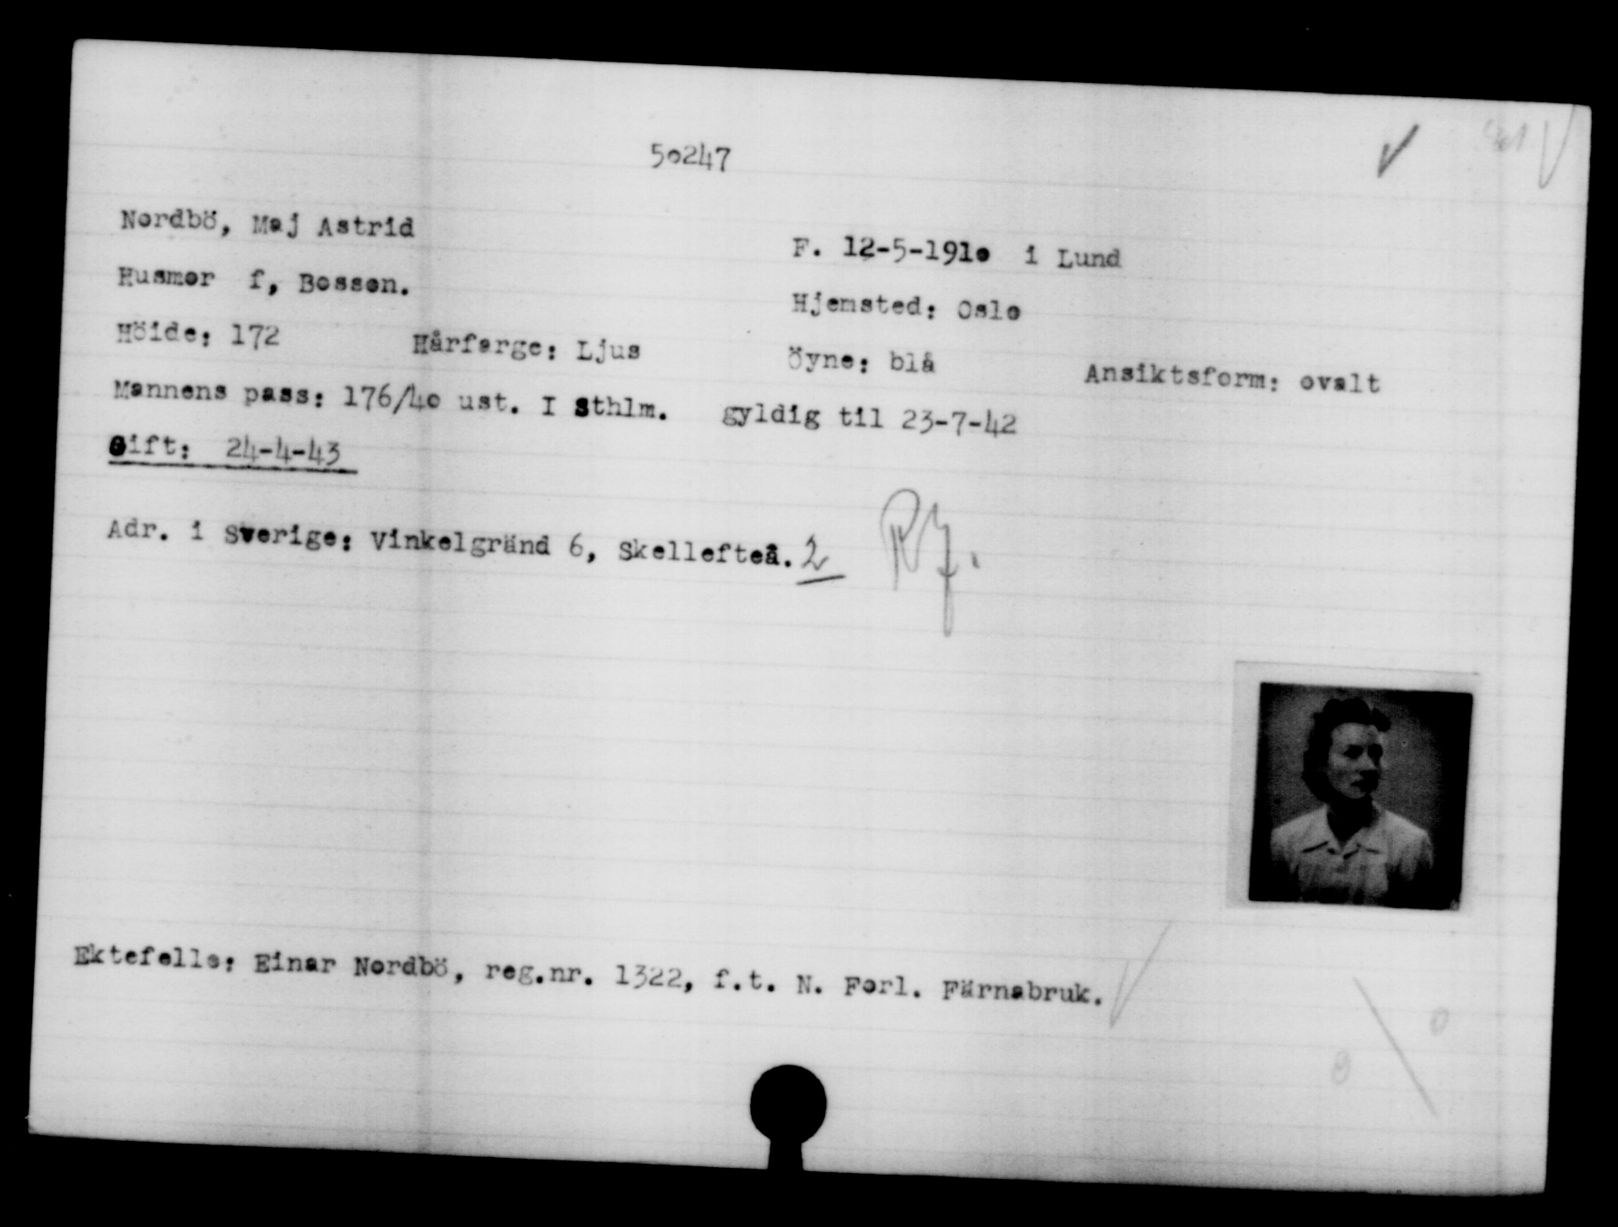 50247
Nordbö, Maj Astrid
F. 12-5-1910 i Lund
Husmor f, Bosson.
Hjemsted: Oslo
Höide: 172 Hårfarge: Ljus Öyne: blå Ansiktsform: ovalt
Mannens pass: 176/40 ust. I Sthlm. gyldig til 23-7-42
Gift: 24-4-43
Adr. i Sverige: Vinkelgränd 6, Skellefteå. 2
Ektefelle: Einar Nordbö, reg.nr. 1322, f.t. N. Forl. Färnabruk.